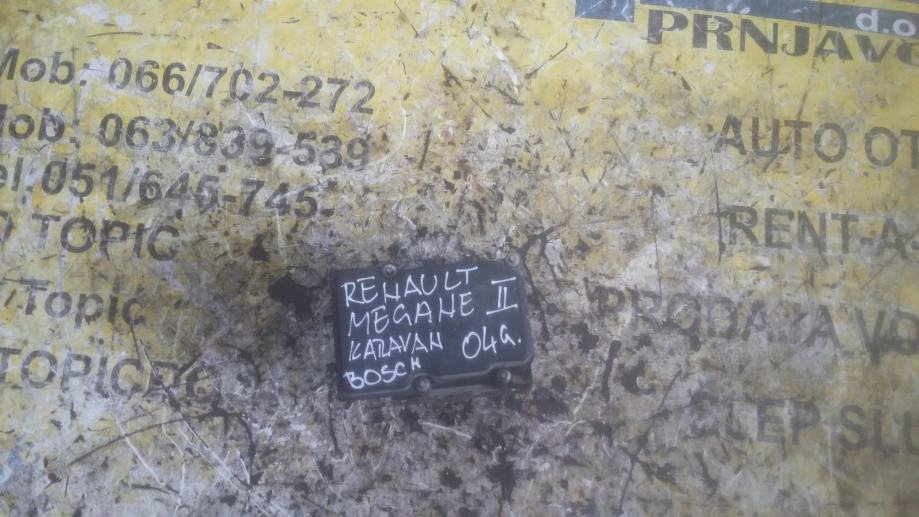 d.o
PRNJAVO
Mob: 066/702-272
Mob: 063/839-539
el.051/645-745
TOPIC
Topic
TOPIC
AUTO OT
RENT-A
PRODAJA VO
SLEP SLU
RENAULT
MEGANE II
KARAVAN 04G.
BOSCH